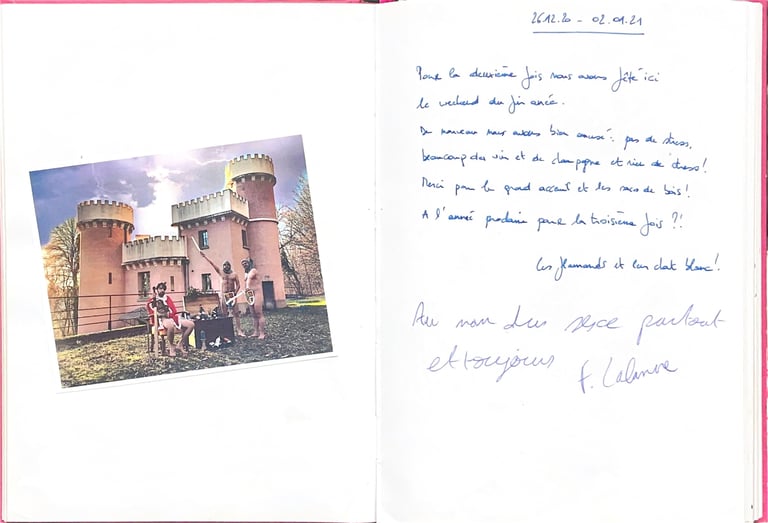 26.12.20 - 02.01.21
Pour la deuxième fois nous avons fêté ici
le weekend du fin année.
De nouveau nous avons bien amusé: pas de stress,
beaucoup du vin et de champagne et rien de stress!
Merci pour le grand accueil et les sacs de bois!
A l'année prochaine pour la troisième fois ?!
Les flamands et leur chat blanc!
Au nom du sexe partout
et toujours
F. Lalanne